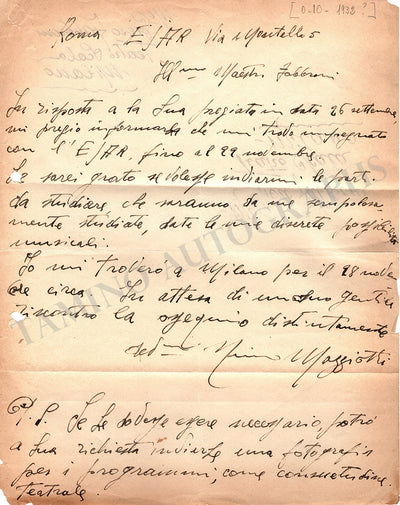 [ 0-10-1932 ? ]
Roma EIAR Via Montello 5
Ill.mo Maestro Fabbroni
In risposta a la Sua pregiata in data 26 settembre,
mi pregio informarla che mi trovo impegnato
con l'EIAR, fino al 22 novembre.
Le sarei grato se volesse inviarmi le parti
da studiare che saranno da me scrupolosa
mente studiate, date le mie discrete possibilità
musicali.
Io mi troverò a Milano per il 28 novem
bre circa. In attesa di un suo gentile
riscontro la ossequio distintamente
Nino Mazziotti
P.S. Se Le dovesse essere necessario, potrò
a Sua richiesta inviarle una fotografia
per i programmi, come consuetudine
teatrale.
TAMINO AUTOGRAPHS